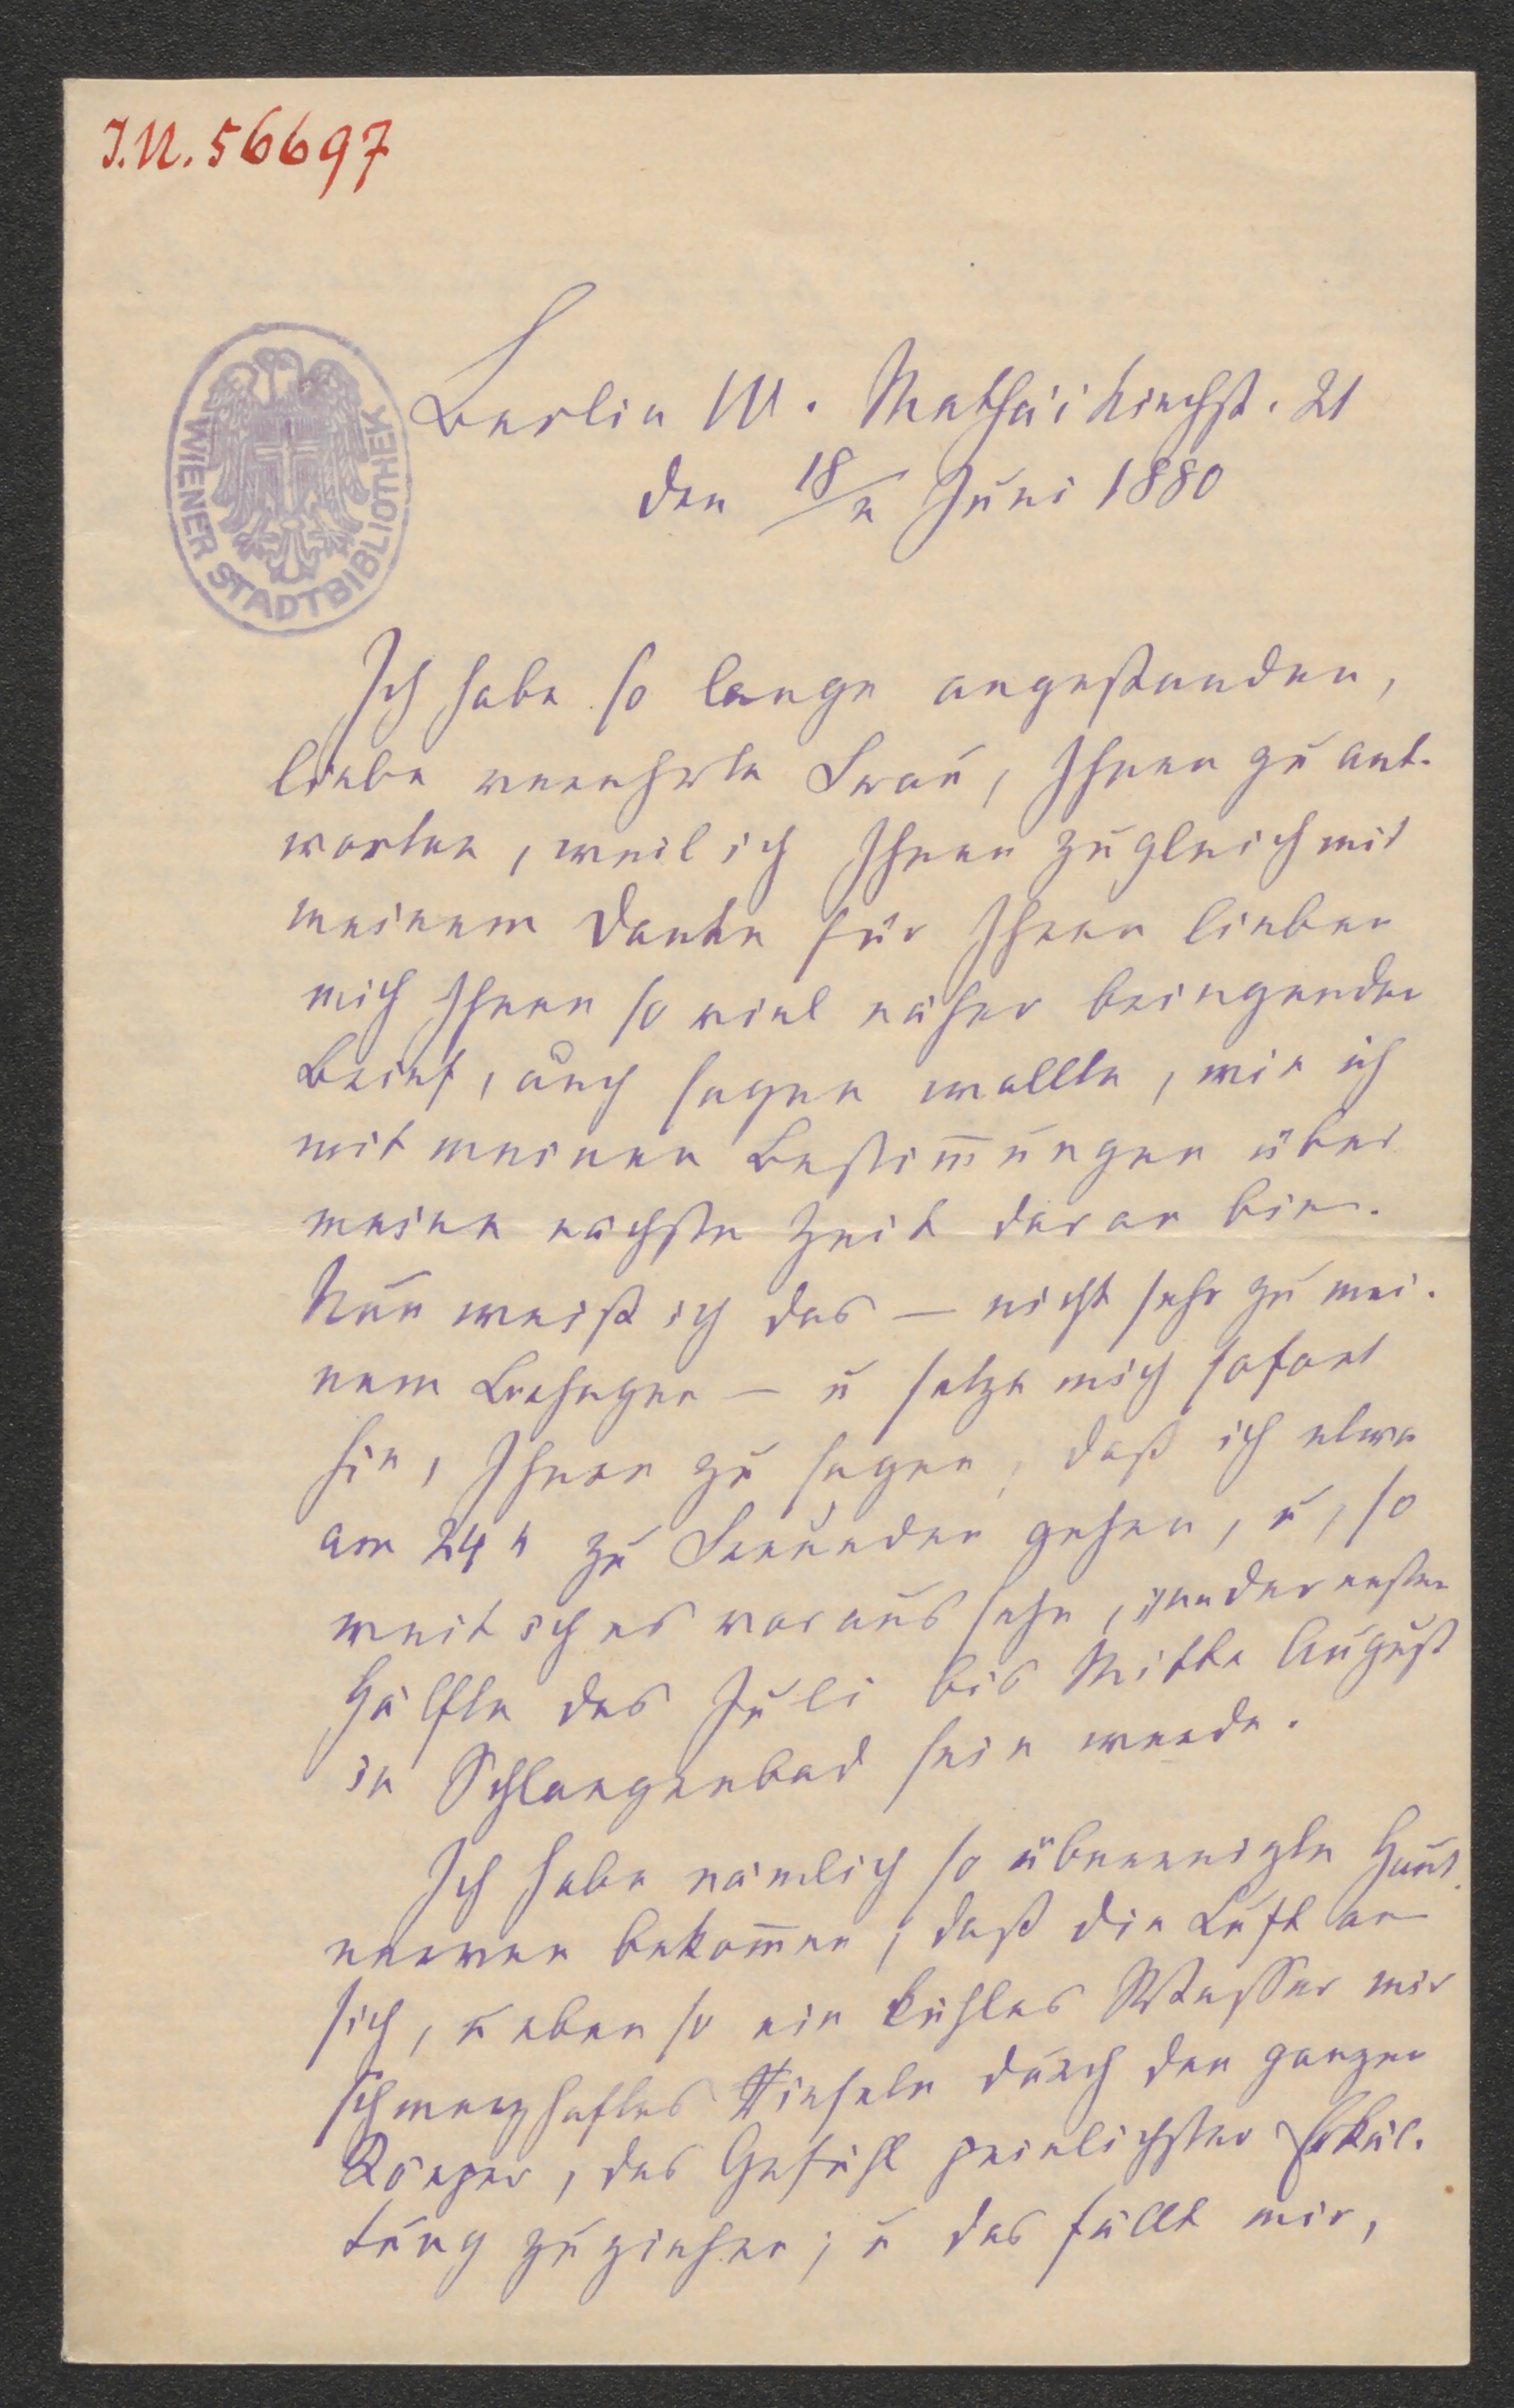 I.N. 56697
WIENER STADTBIBLIOTHEK
Berlin W. Mathäikirchst. 21
den 18/n Juni 1880
Ich habe so lange angestanden,
liebe verehrte Frau, Ihnen zu ant-
worten, weil ich Ihnen zugleich mit
meinem Danke für Ihren lieben
mich Ihnen so viel näher bringenden
Brief, auch sagen wollte, wie ich
mit meinen Bestim̅ungen über
meine nächste Zeit daran bin.
Nun weiß ich das — nicht sehr zu mei-
nem Behagen — u setze mich sofort
hin, Ihnen zu sagen, daß ich etwa
am 24 t zu Freunden gehen, u, so
weit ich es voraus sehe, in der ersten
Hälfte des Juli bis Mitte August
in Schlangenbad sein werde.
Ich habe nämlich so überreizte Haut-
nerven bekom̅en, daß die Luft an
sich, u eben so ein kühles Wasser mir
schmerzhaftes Rieseln durch den ganzen
Körper, das Gefühl peinlichster Erkäl-
tung zuziehen; u das fällt mir,